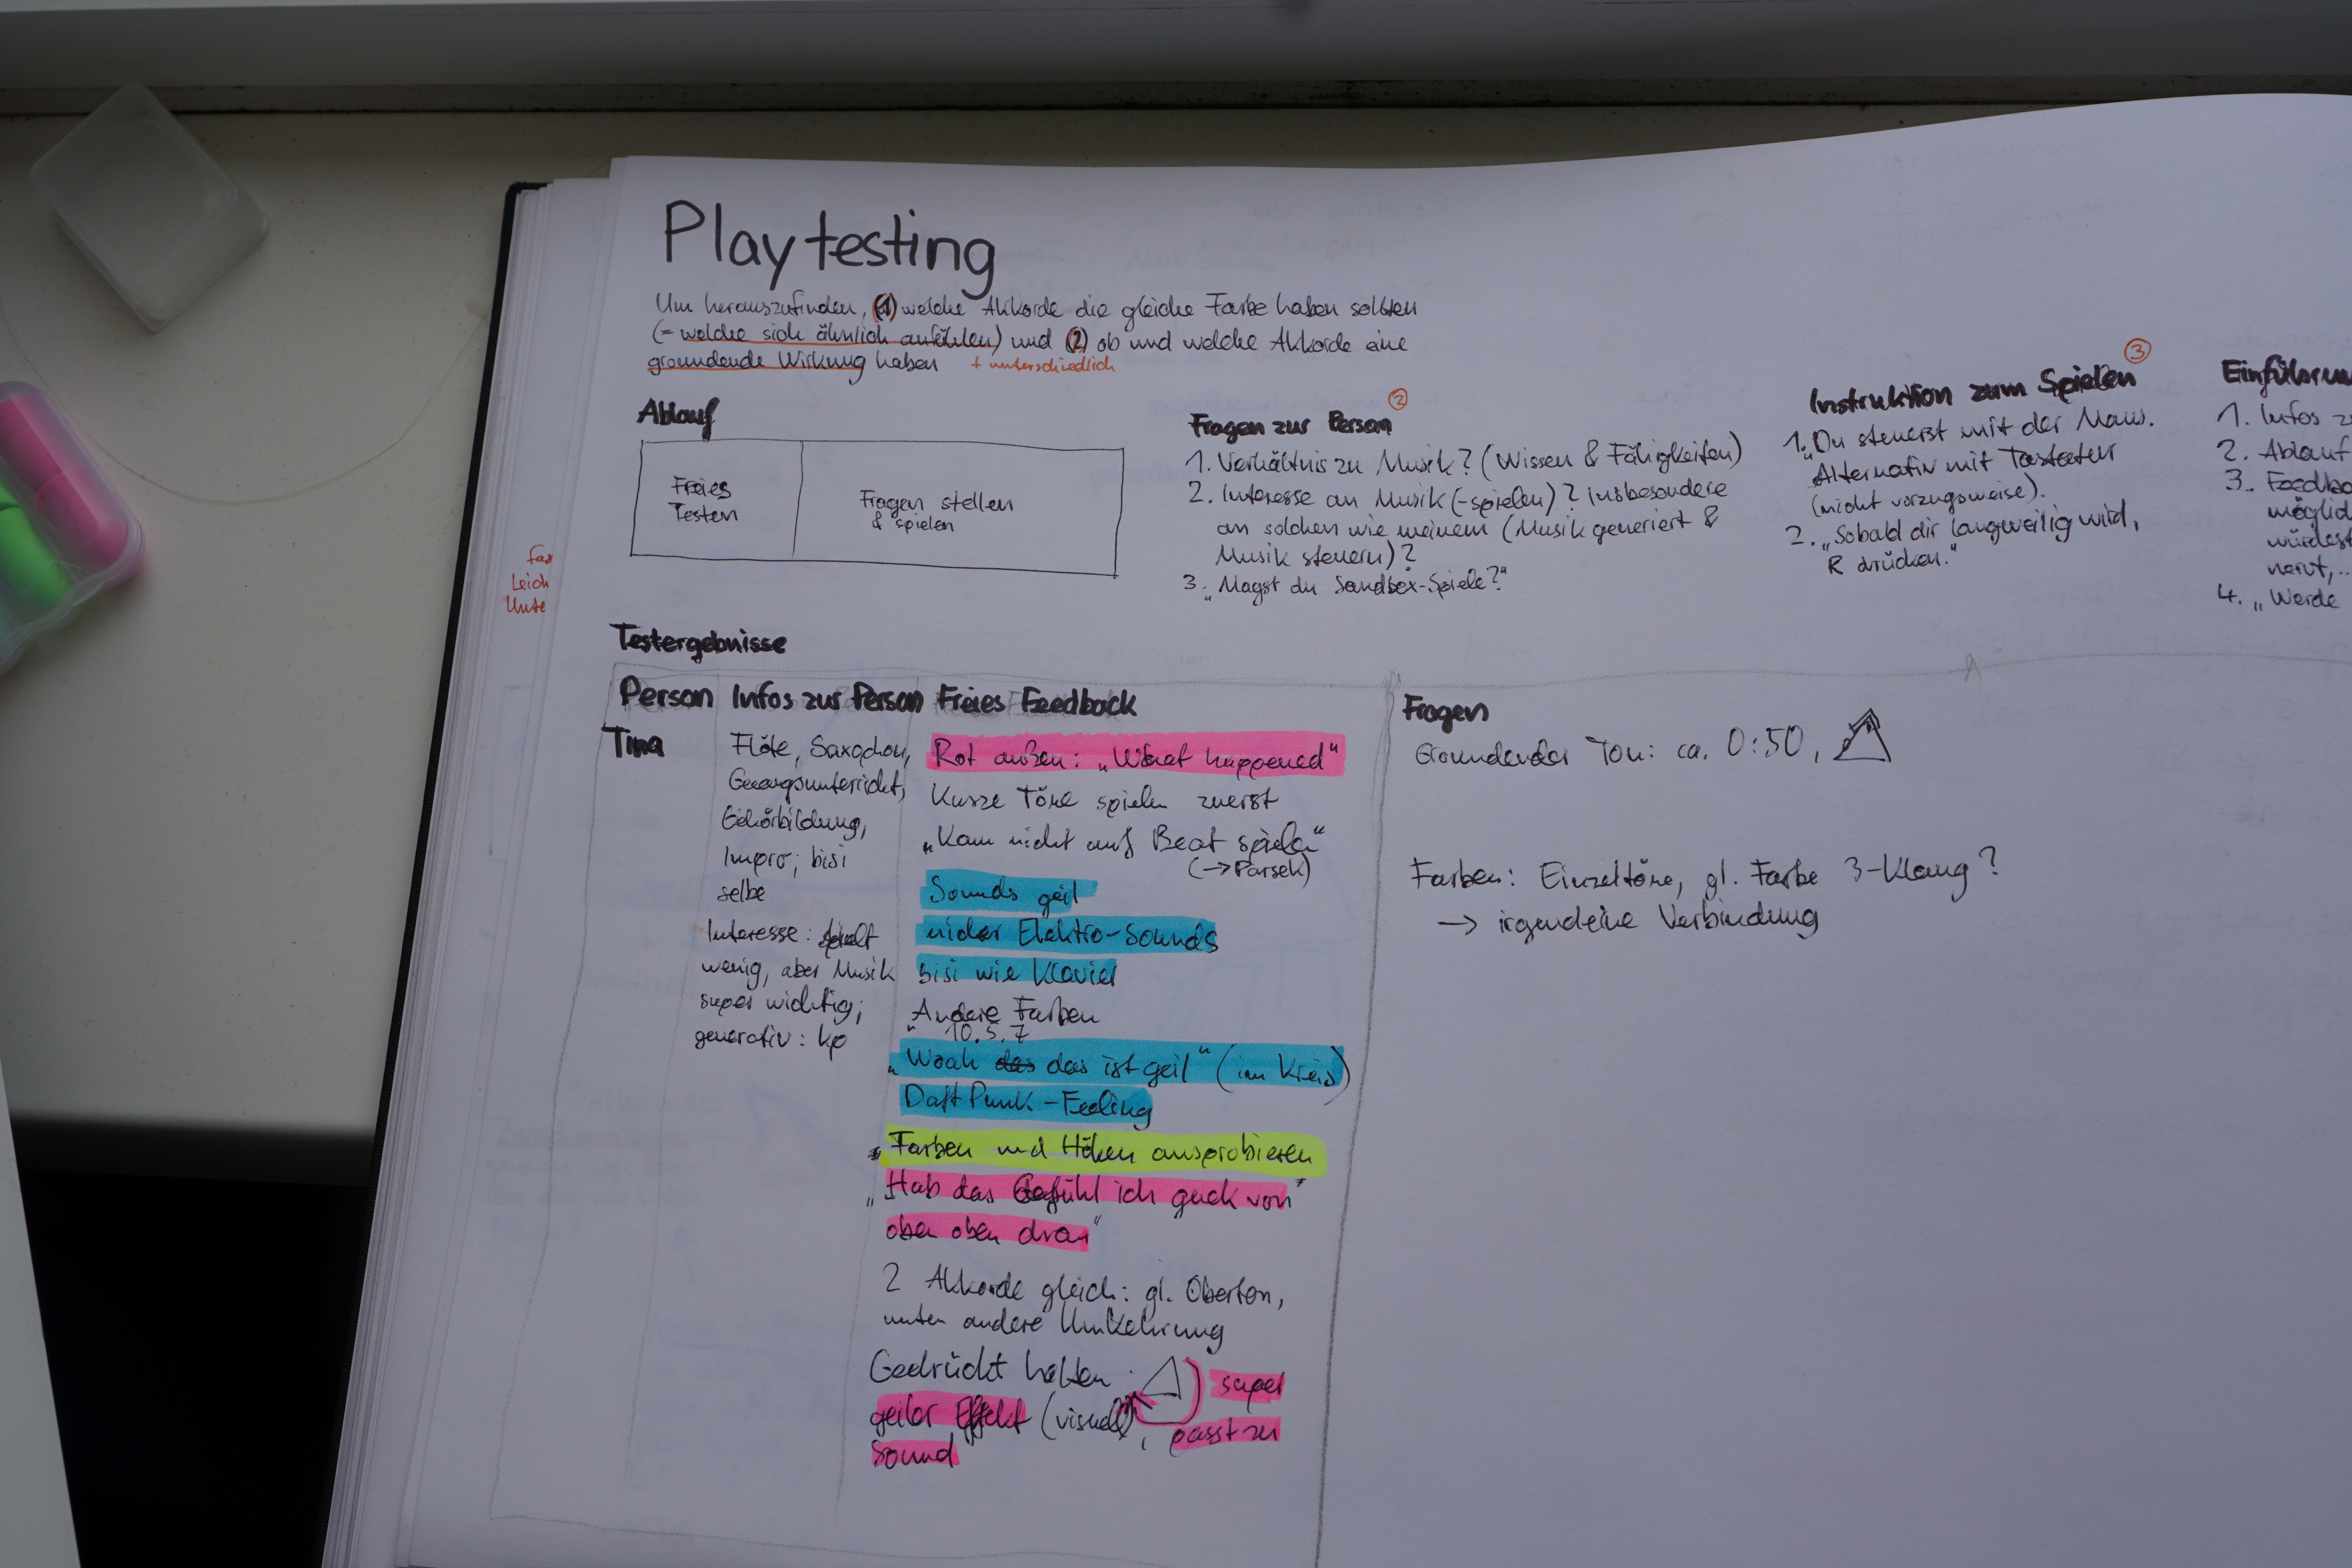 Playtesting
Um herauszufinden, (1) welche Akkorde die gleiche Farbe haben sollten
(= welche sich ähnlich anfühlen) und (2) ob und welche Akkorde eine
groundende Wirkung haben + unterschiedlich
Ablauf
Freies
Testen
Fragen stellen
& spielen
Fragen zur Person
2
1. Verhältnis zu Musik? (Wissen & Fähigkeiten)
2. Interesse an Musik (-spielen)? insbesondere
an solchen wie meinem (Musik generiert &
Musik steuern)?
3. „Magst du Sandbox-Spiele?"
Instruktion zum Spielen
3
1. „Du steuerst mit der Maus.
Alternativ mit Tastatur
(nicht vorzugsweise).
2. „Sobald dir langweilig wird,
R drücken."
Einführun
1. Infos z
2. Ablauf
3. Feedba
möglic
würdest
nervt,..
4. „Werde
fas
Leich
Unte
Testergebnisse
Person Infos zur Person Freies Feedback
Tina
Flöte, Saxophon,
Gesangsunterricht,
Gehörbildung,
Impro; bisi
selbe
Interesse: spielt
wenig, aber Musik
super wichtig;
generativ: kp
Rot außen: „What happened"
Kurze Töne spielen zuerst
„Kann nicht auf Beat spielen"
(→Parsek)
Sounds geil
Elektro-Sounds
bisi wie Klavier
Andere Farben
10.5.7
„Woah das das ist geil" (im Kreis)
Daft Punk-Feeling
„Farben und Höhen ausprobieren
„Hab das Gefühl ich guck von"
oben oben dran"
2 Akkorde gleich: gl. Oberton,
unten andere Umkehrung
Gedrückt halten: super
geiler Effekt (visuell), passt zu
Sound
Fragen
Groundender Ton: ca. 0:50,
Farben: Einzeltöne, gl. Farbe 3-Klang?
→ irgendeine Verbindung